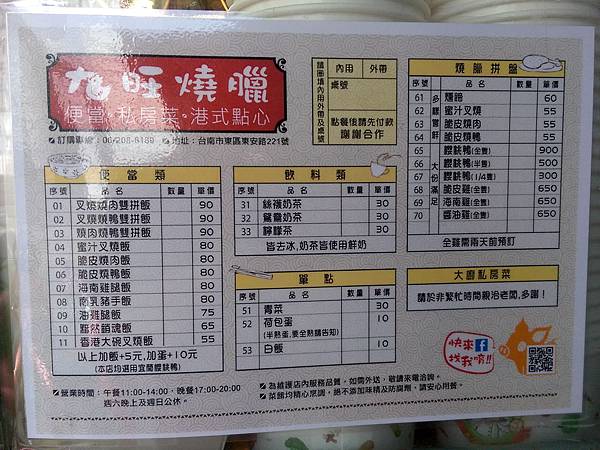 九旺燒臘
便當‧私房菜‧港式點心
訂購專線：06-208-6189 地址：台南市東區東安路221號
請圈填內用外帶及桌號
內用 外帶
桌號
點餐後請先付款
謝謝合作
便當類
序號 品名 數量 單價
01 叉燒燒肉雙拼飯 90
02 叉燒燒鴨雙拼飯 90
03 燒肉燒鴨雙拼飯 90
04 蜜汁叉燒飯 80
05 脆皮燒肉飯 80
06 脆皮燒鴨飯 80
07 海南雞腿飯 80
08 南乳豬手飯 80
09 油雞腿飯 75
10 黯然銷魂飯 65
11 香港大碗叉燒飯 55
以上加飯+5元,加蛋+10元
(本店均選用宜蘭櫻桃鴨)
飲料類
序號 品名 數量 單價
31 絲襪奶茶 30
32 鴛鴦奶茶 30
33 檸檬茶 30
皆去冰,奶茶皆使用鮮奶
單點
序號 品名 數量 單價
51 青菜 30
52 荷包蛋 10
(半熟蛋,要全熟請告知)
53 白飯 10
燒臘拼盤
序號 品名 數量 單價
多種口味
61 燻蹄 60
62 蜜汁叉燒 55
63 脆皮燒肉 55
64 脆皮燒鴨 55
大份滿足
65 櫻桃鴨(全隻) 900
66 櫻桃鴨(半隻) 500
67 櫻桃鴨(1/4隻) 300
68 脆皮雞(全隻) 650
69 海南雞(全隻) 650
70 醬油雞(全隻) 650
全雞需兩天前預訂
大廚私房菜
請於非繁忙時間親洽老闆,多謝!
快來
找我唷!!
營業時間：午餐11:00-14:00、晚餐17:00-20:00
週六晚上及週日公休。
為維護店內服務品質，如需外送，敬請來電洽詢。
菜餚均精心烹調，絕不添加味精及防腐劑，請安心用餐。